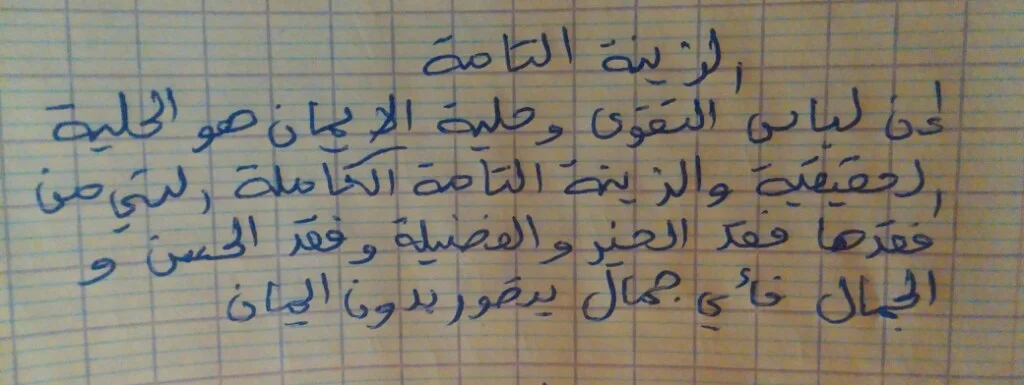 الزينة التامة
أن لباس التقوى وحلية الإيمان هو الحلية
الحقيقية والزينة التامة الكاملة التي من
فقدها فقد الخير والفضيلة وفقد الحسن و
الجمال فأي جمال يتصور بدون إيمان